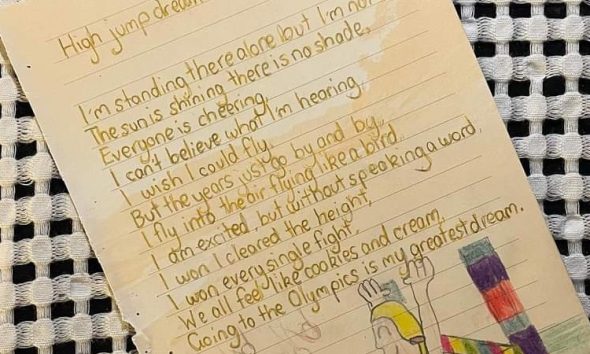 High jump dream
I'm standing there alone but I'm not
The sun is shining there is no shade,
Everyone is cheering,
I can't believe what I'm hearing.
I wish I could fly,
But the years just go by and by,
I fly into the air flying like a bird,
I am excited, but without speaking a word,
I won I cleared the height,
I won every single fight,
We all feel like cookies and cream,
Going to the Olympics is my greatest dream.